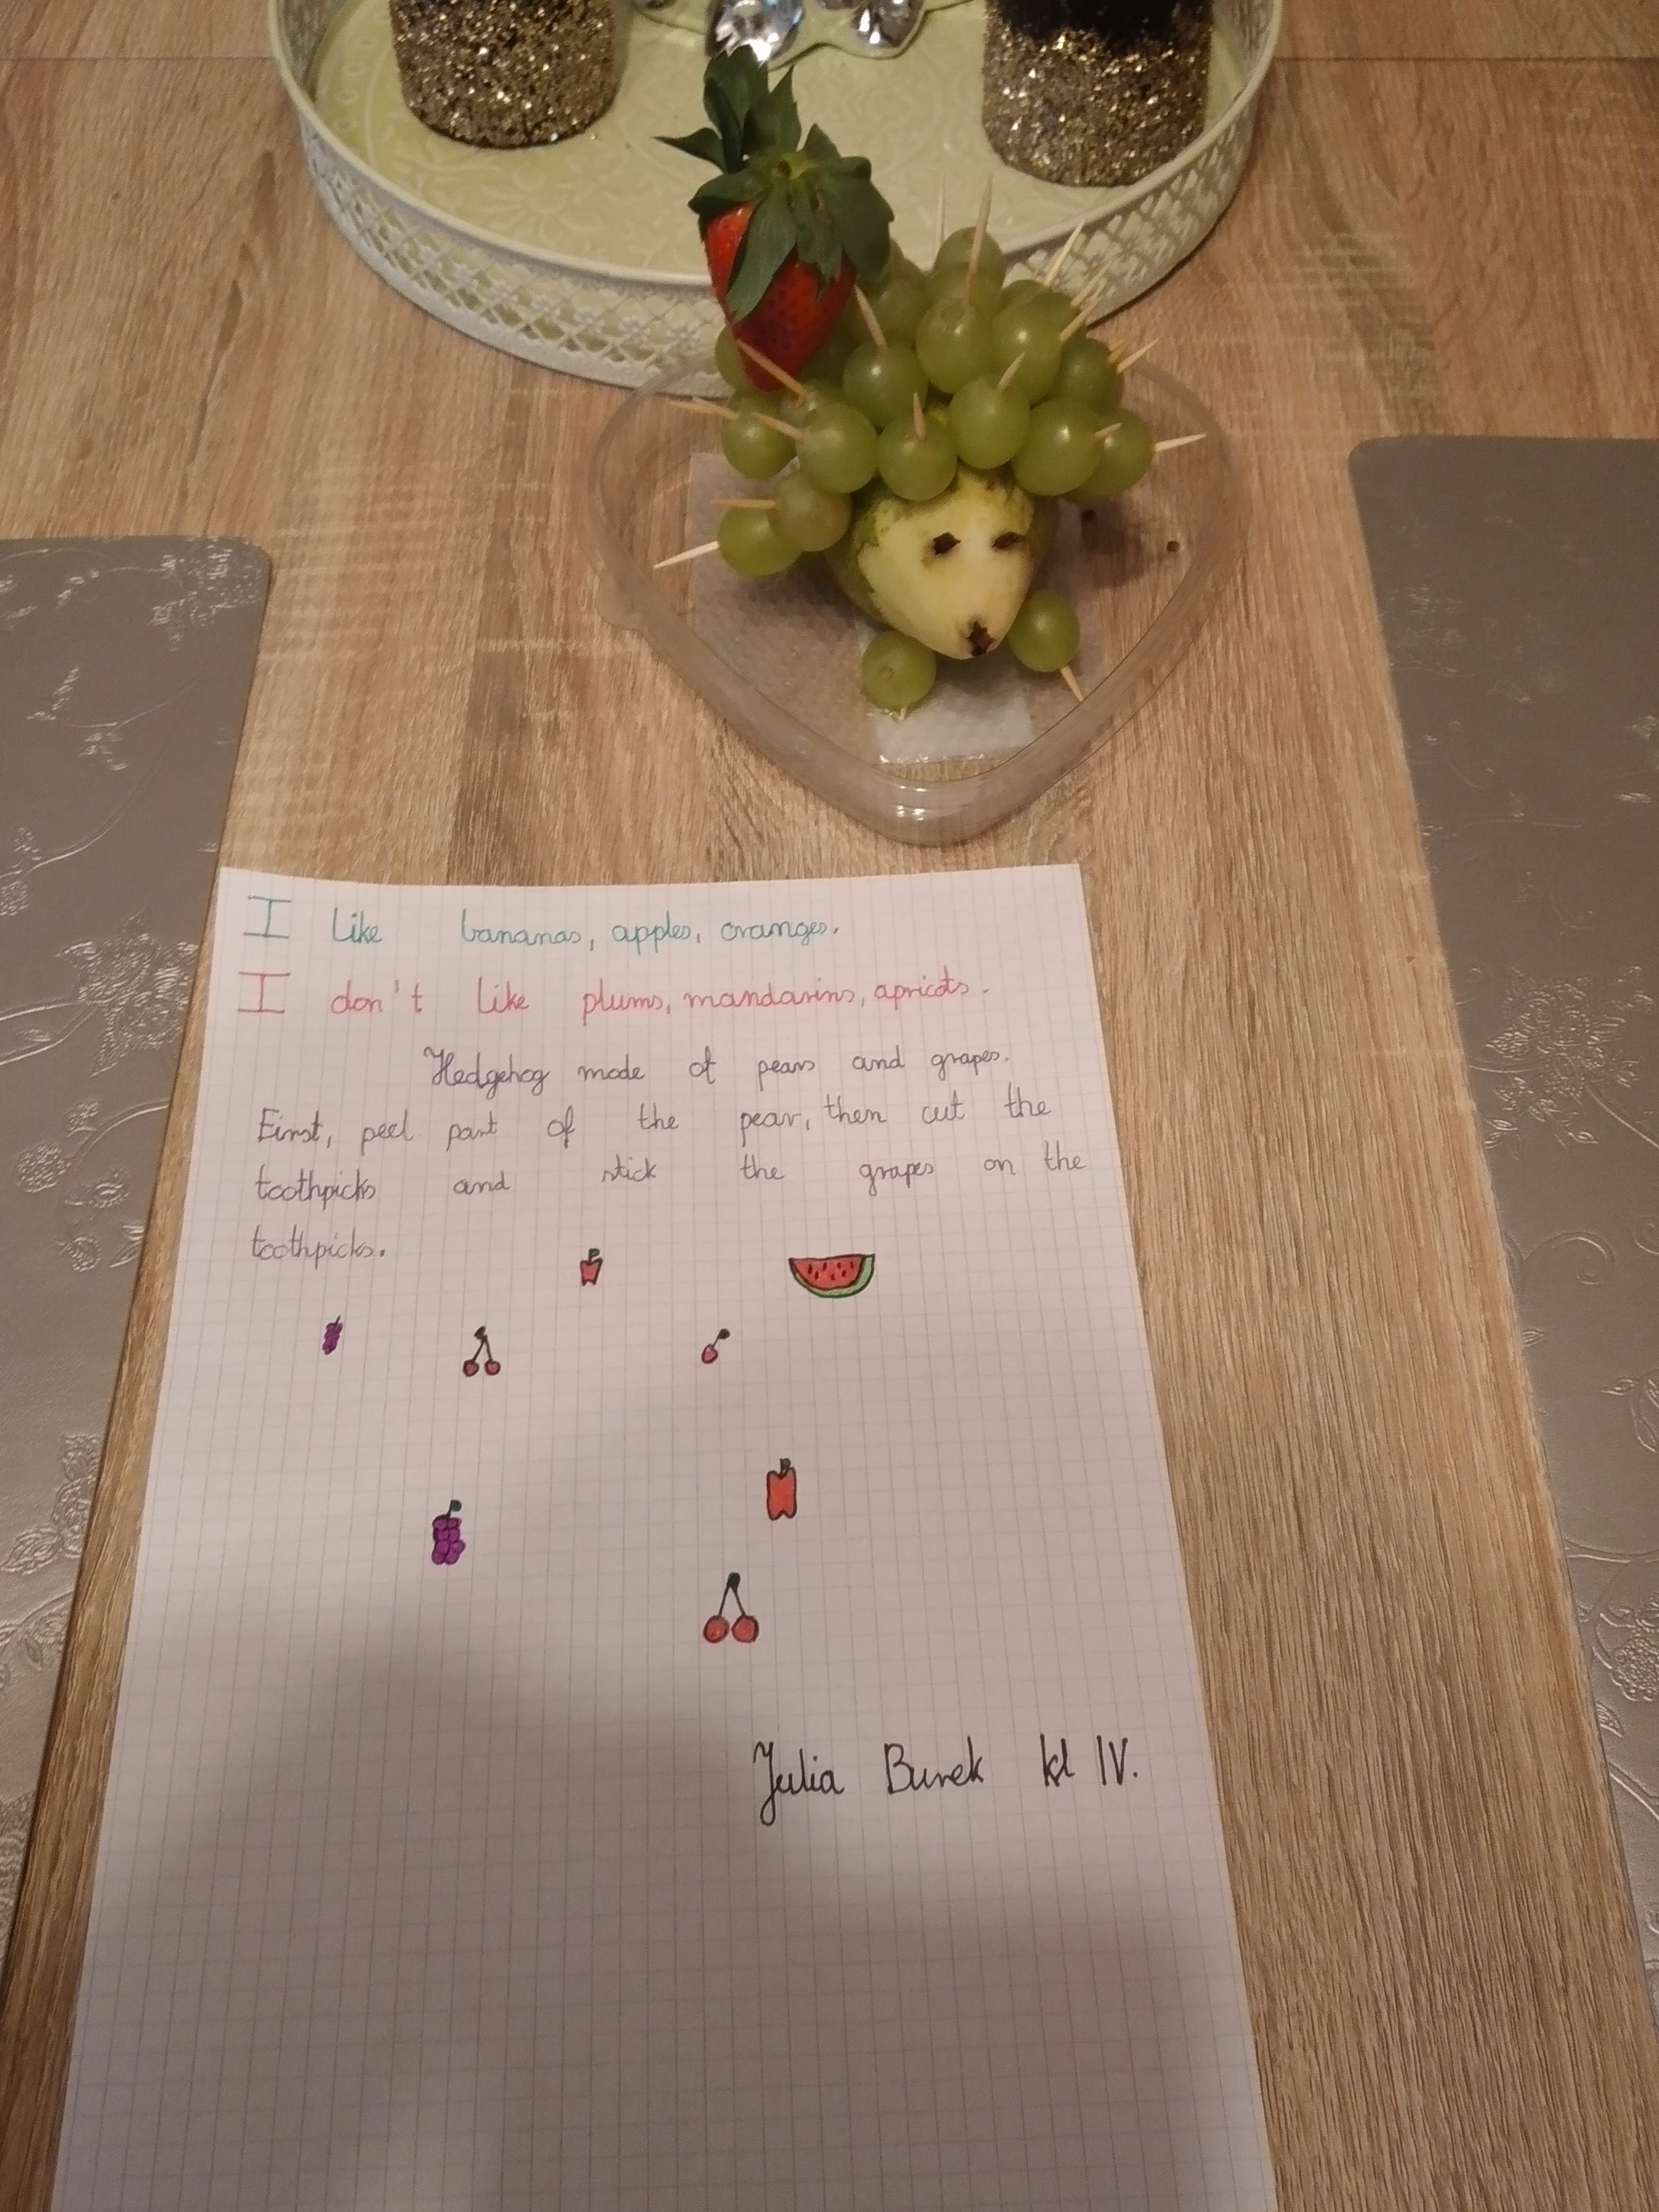 I like bananas, apples, oranges.
I don't like plums, mandarins, apricots.
Hedgehog made of pears and grapes.
First, peel part of the pear, then cut the
toothpicks and stick the grapes on the
toothpicks.
Julia Burek kl IV.